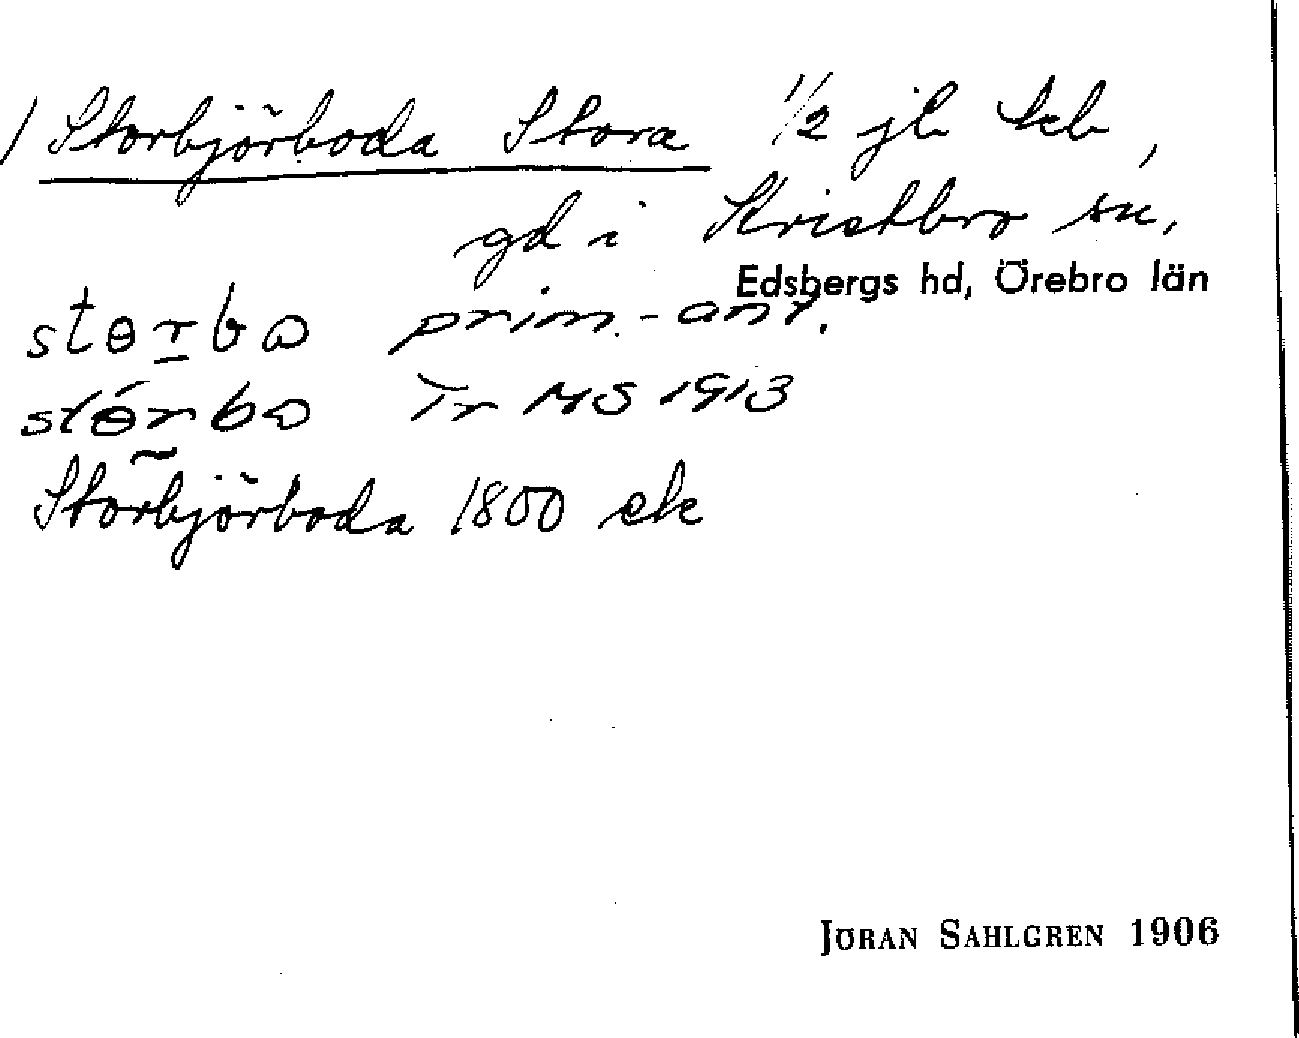 1) Storbjörboda Stora 1/2 jb skb,
gd i Kristbro sn,
Edsbergs hd, Örebro län
stɵrba prim.-ant.
stɵ́rba Tr MS 1913
Storbjörboda 1800 ek
JÖRAN SAHLGREN 1906